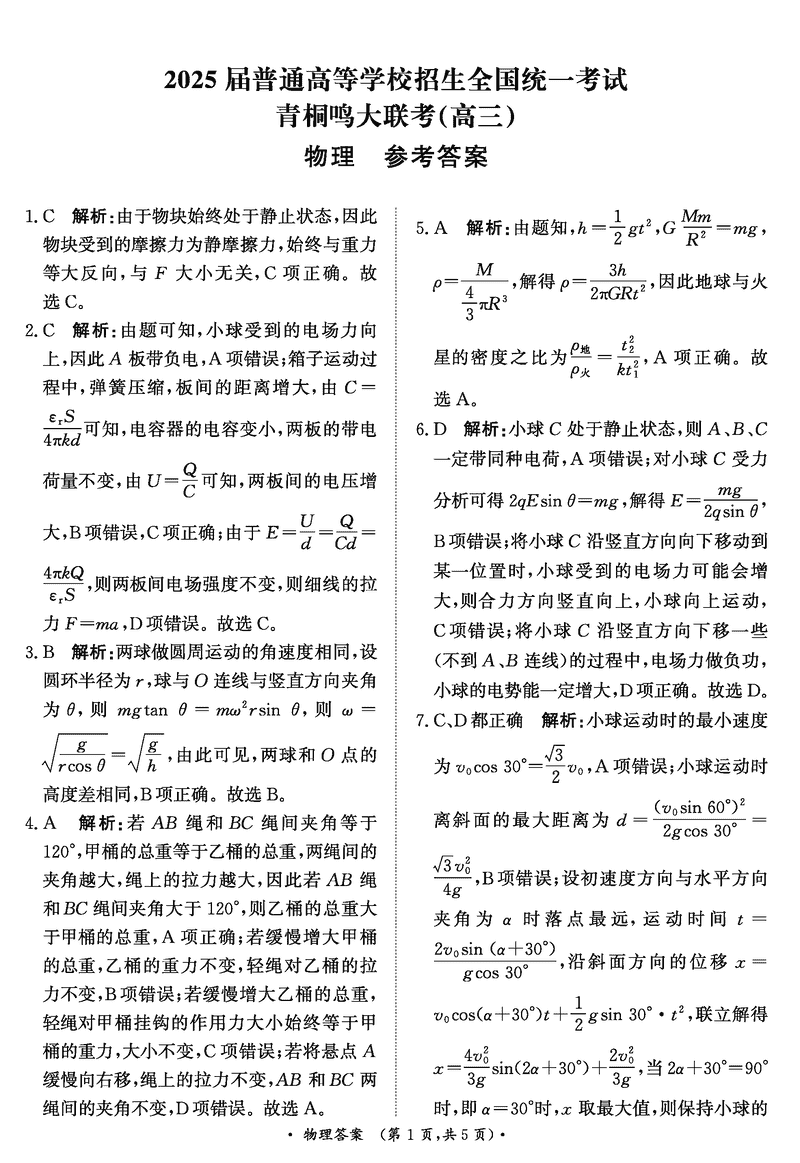 2025 届普通高等学校招生全国统一考试
青桐鸣大联考(高三)
物理 参考答案
1. C 解析:由于物块始终处于静止状态,因此
物块受到的摩擦力为静摩擦力,始终与重力
等大反向,与 F 大小无关,C 项正确。故
选 C。
2. C 解析:由题可知,小球受到的电场力向
上,因此 A 板带负电,A 项错误;箱子运动过
程中,弹簧压缩,板间的距离增大,由 C=
εᵣS/4πkd 可知,电容器的电容变小,两板的带电
荷量不变,由 U=Q/C 可知,两板间的电压增
大,B 项错误,C 项正确;由于 E=U/d=Q/Cd=
4πkQ/εᵣS,则两板间电场强度不变,则细线的拉
力 F=ma,D 项错误。故选 C。
3. B 解析:两球做圆周运动的角速度相同,设
圆环半径为 r,球与 O 连线与竖直方向夹角
为 θ,则 mgtan θ = mω²rsin θ,则 ω =
√(g/rcos θ)=√(g/h),由此可见,两球和 O 点的
高度差相同,B 项正确。故选 B。
4. A 解析:若 AB 绳和 BC 绳间夹角等于
120°,甲桶的总重等于乙桶的总重,两绳间的
夹角越大,绳上的拉力越大,因此若 AB 绳
和 BC 绳间夹角大于 120°,则乙桶的总重大
于甲桶的总重,A 项正确;若缓慢增大甲桶
的总重,乙桶的重力不变,轻绳对乙桶的拉
力不变,B 项错误;若缓慢增大乙桶的总重,
轻绳对甲桶挂钩的作用力大小始终等于甲
桶的重力,大小不变,C 项错误;若将悬点 A
缓慢向右移,绳上的拉力不变,AB 和 BC 两
绳间的夹角不变,D 项错误。故选 A。
5. A 解析:由题知,h=1/2 gt²,G Mm/R²=mg,
ρ=M/(4/3 πR³),解得 ρ=3h/2πGRt²,因此地球与火
星的密度之比为 ρ地/ρ火=t₂²/kt₁²,A 项正确。故
选 A。
6. D 解析:小球 C 处于静止状态,则 A、B、C
一定带同种电荷,A 项错误;对小球 C 受力
分析可得 2qEsin θ=mg,解得 E=mg/2qsin θ,
B 项错误;将小球 C 沿竖直方向向下移动到
某一位置时,小球受到的电场力可能会增
大,则合力方向竖直向上,小球向上运动,
C 项错误;将小球 C 沿竖直方向下移一些
(不到 A、B 连线)的过程中,电场力做负功,
小球的电势能一定增大,D 项正确。故选 D。
7. C、D 都正确 解析:小球运动时的最小速度
为 v₀cos 30°=√3/2 v₀,A 项错误;小球运动时
离斜面的最大距离为 d=(v₀sin 60°)²/2gcos 30°=
√3v₀²/4g,B 项错误;设初速度方向与水平方向
夹角为 α 时落点最远,运动时间 t =
2v₀sin (α+30°)/gcos 30°,沿斜面方向的位移 x =
v₀cos(α+30°)t+1/2 gsin 30°·t²,联立解得
x=4v₀²/3g sin(2α+30°)+2v₀²/3g,当 2α+30°=90°
时,即 α=30°时,x 取最大值,则保持小球的
· 物理答案 (第 1 页,共 5 页) ·